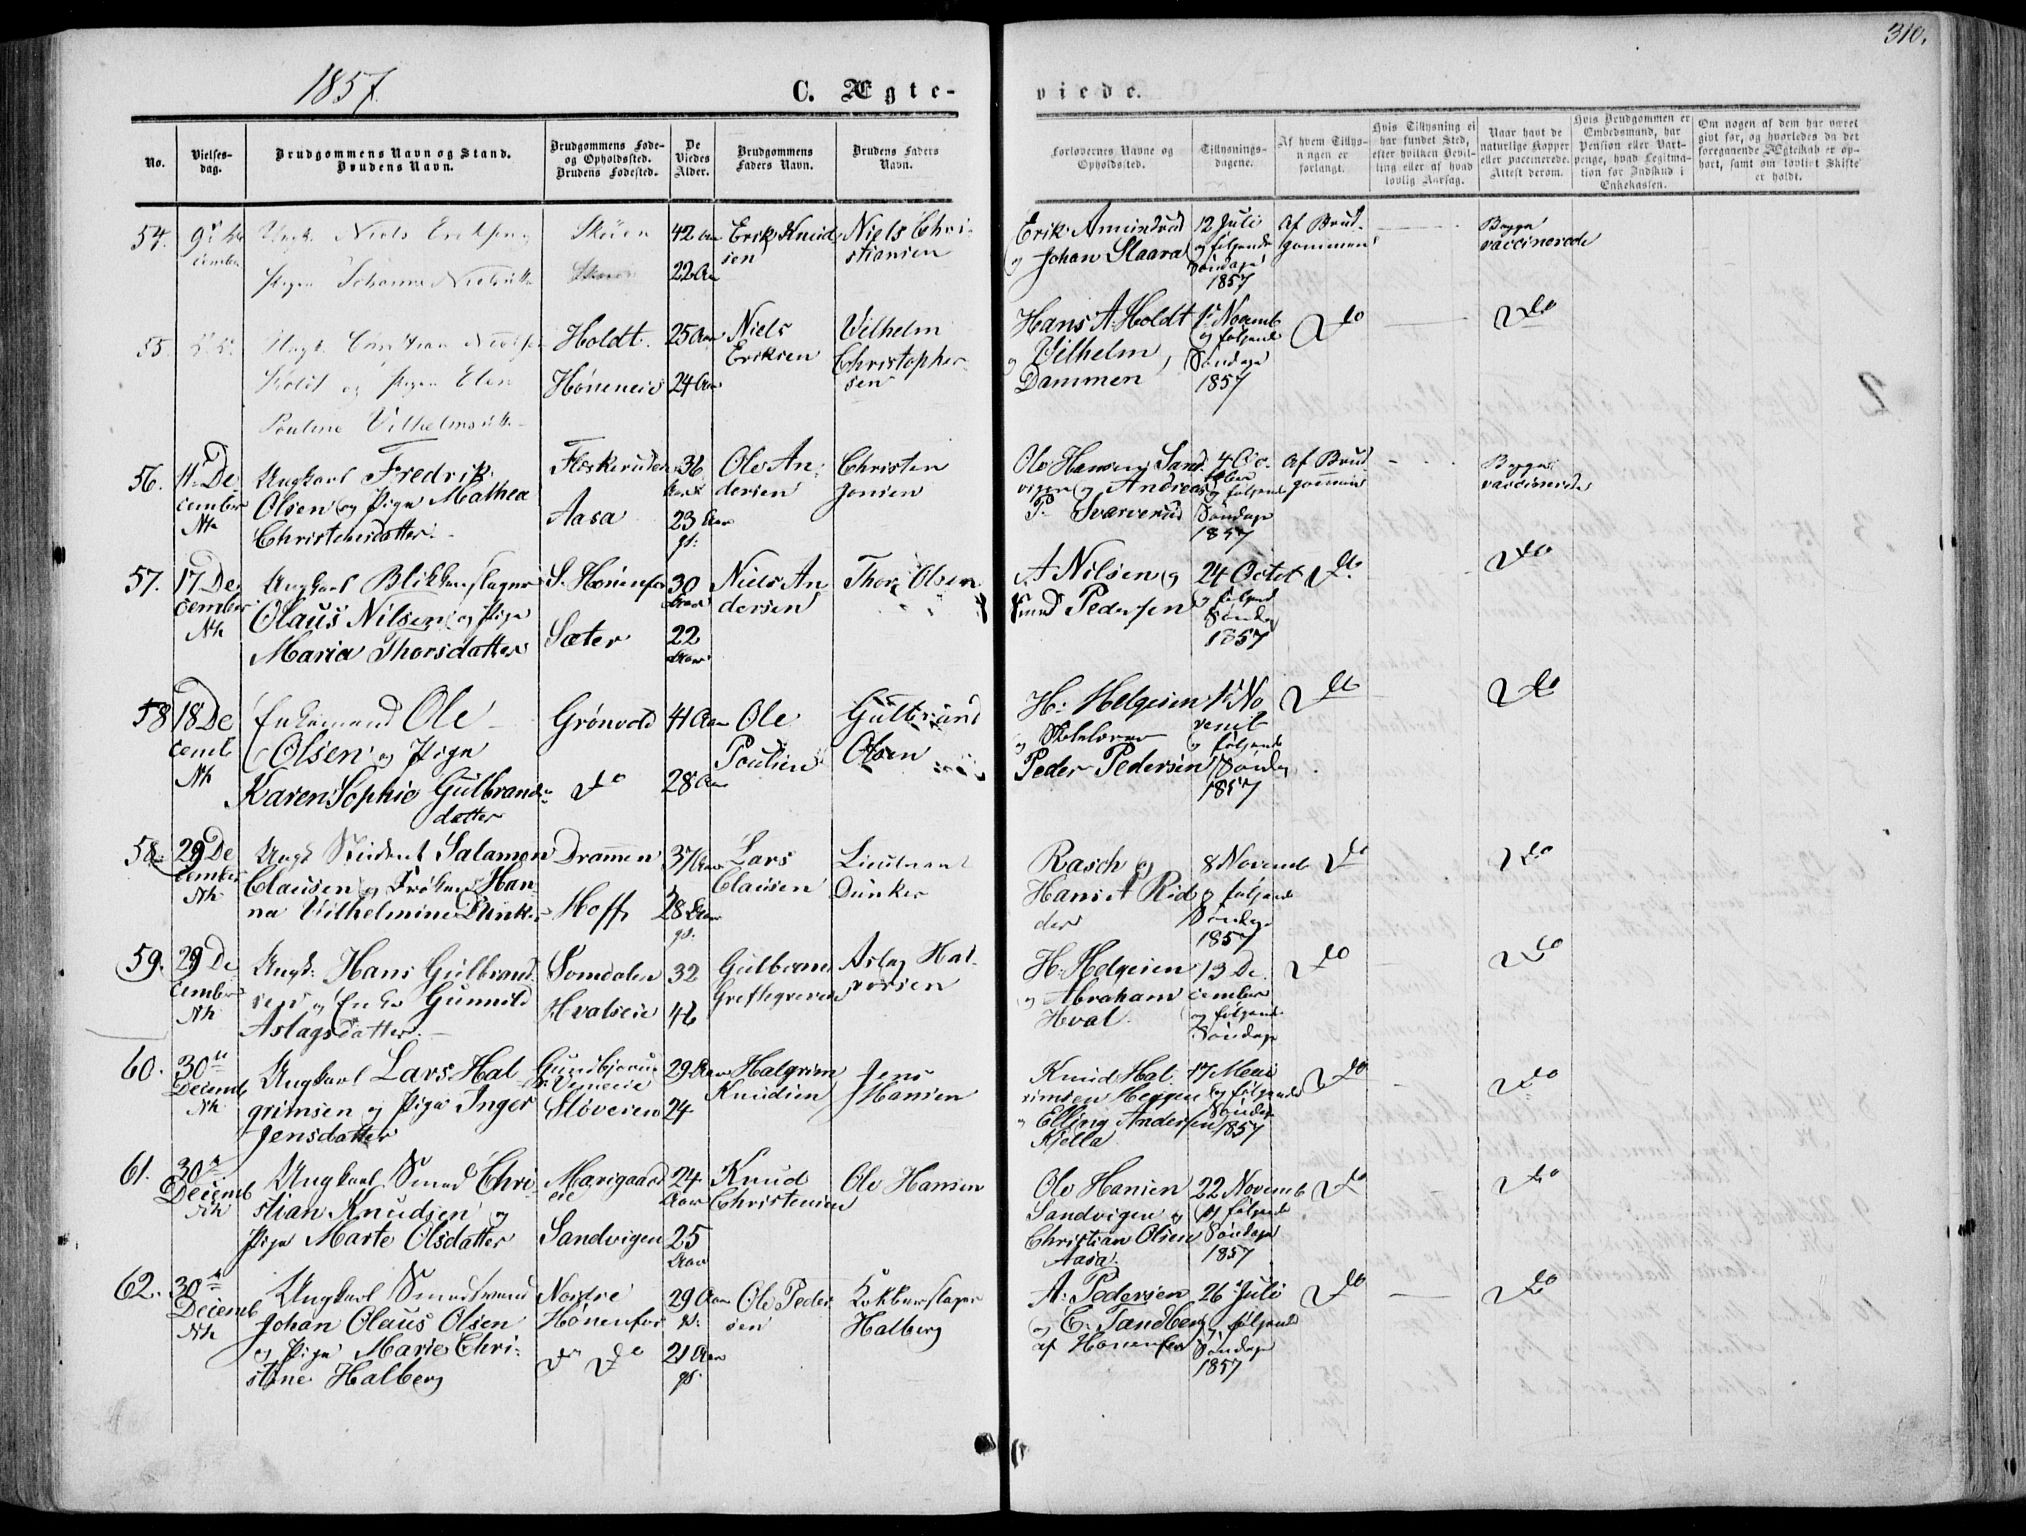 310.
1857.
C. Ægte-
viede.
No.
Vielses-
dag.
Brudgommens Navn og Stand.
Brudens Navn.
Brudgommens Føde-
og Opholdssted.
Brudens Fødested.
De
Viedes
Alder.
Brudgommens
Faders Navn.
Brudens Faders
Navn.
Forlovernes Navne og
Opholdssted.
Tillysnings-
dagene.
Af hvem Tillys-
ningen er
forlangt.
Hvis Tillysning ei
har fundet Sted,
efter hvilken Bevil-
ling eller af hvad
lovlig Aarsag.
Naar havt de
naturlige Kopper
eller vaccinerede.
Attest derom.
Hvis Brudgommen er
Embedsmand, har
Pension eller Vart-
penge, hvad Legitima-
tion for Indskud i
Enkekassen.
Om nogen af dem har været
gift før, og hvorledes da det
foregaaende Ægteskab er op-
hørt, samt om lovligt Skifte
er holdt.
54. 9de De
cember
Ungk. Niels Eriksen
Pigen Johanne Nielsdtr
Skøien
42 Aar
22 Aar
Erik Knud
sen
Niels Chri-
stiansen
Erik Amundrud
og Johan Slaara
12 Juli
og følgende
Søndage
1857
Af Brud-
gommen
Begge
vaccinerede
55.
Holdt og Pigen Elen
Pauline Vilhelmsdtr
Holdt.
Høneneie
25 Aar
24 Aar
Niels
Eriksen
Vilhelm
Christopher-
sen
Hans A. Holdt
og Vilhelm
Dammen
1st Novemb
og følgende
Søndage
1857
Do
Do
56. 11te De
cember
Nk
Ungkarl Fredrik
Olsen og Pige Mathea
Christensdatter.
Fleskerud
Aasa
36
Aar
23 Aar
gl.
Ole An-
dersen
Christen
Jonsen
Ole Hansen Sand-
vigen og Andreas
P. Svarverud
4 Oc-
tober
og følgend
Søndage
1857
Af Brud
gommen
Begge
vaccinerede
57. 17 De
cember
Nk
Ungkarl Blikkenslager
Olaus Nilsen og Pige
Maria Thorsdatter
S. Hønenfos
Sæter
30
Aar
22
Aar
Niels An
dersen
Thor Olsen
A Nilsen og
Knud Pedersen
24 Octob
og følgend
Søndag
1857
Do
Do
58 18 De
cemb
Nk
Enkemand Ole
Olsen og Pige
Karen Sophie Gulbrands-
datter
Grønvold
Do
41 Aar
28 Aar
Ole
Poulsen
Gulbrand
Olsen
H. Helgesen
og Skolelærer
Peder Pedersen
1st No
vemb
og følgende
Søndag
1857
Do
Do
58. 29 De
cember
Nk
Ungk Student Salamon
Clausen og Frøken Han-
na Vilhelmine Dunker
Drammen
Hoff
37 Aar
28 Aar
gl.
Lars
Clausen
Lieutnant
Dunker
Rasch og
Hans A Rid
der
8 Novemb
og følgende
Søndage
1857
Do
Do
59. 29 De
cember
Nk
Ungk: Hans Gulbrand-
sen og Enke Gunnild
Aslagsdatter
Somdalen
Hvalseie
32
46
Gulbrand
Greftegreven
Aslag Hal-
vorsen
H. Helgesen
og Abraham
Hval.
13 De
cember
og følgend
Søndage
Do
Do
60. 30te
Decemb
Nk
Ungkarl Lars Hal
grimsen og Pige Inger
Jensdatter
Støveren
29 Aar
24
Halgrim
Knudsen
Jens
Hansen
Knud Hal-
rimsen Heggen
og Elling Andersen
Kjella
17 Mai
og følgende
Søndage
1857
Do
Do
61. 30te
Decemb
Nk
Ungkarl Smed Chri-
stian Knudsen og
Pige Marte Olsdatter
Marigaard
eie
Sandvigen
24
Aar
25
Aar
Knud
Christensen
Ole Hansen
Ole Hansen
Sandvigen og
Christian Olsen
Aasa.
22 Novemb
og følgende
Søndage
1857
Do
Do
62. 30te
Decemb
Nk
Ungkarl Smedsvend
Johan Olaus Olsen
og Pige Marie Chri-
stine Halberg
Nordre
Hønenfos
Do Do
29 Aar
gl.
21 Aar
gl.
Ole Peder
sen
Kobberslager
Halberg
A. Pedersen
og E. Tandberg
af Hønenfos
26 Juli
og følgende
Søndage
1857
Do
Do